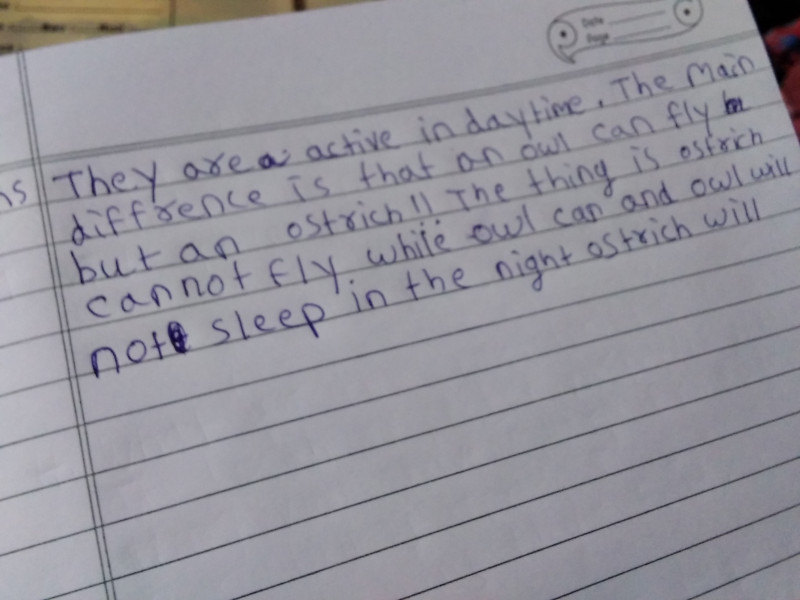 Date
Page
ns They are a active in daytime. The main
diffrence is that an owl can fly
but an ostrich!! The thing is ostrich
cannot fly while owl can and owl will
not sleep in the night ostrich will